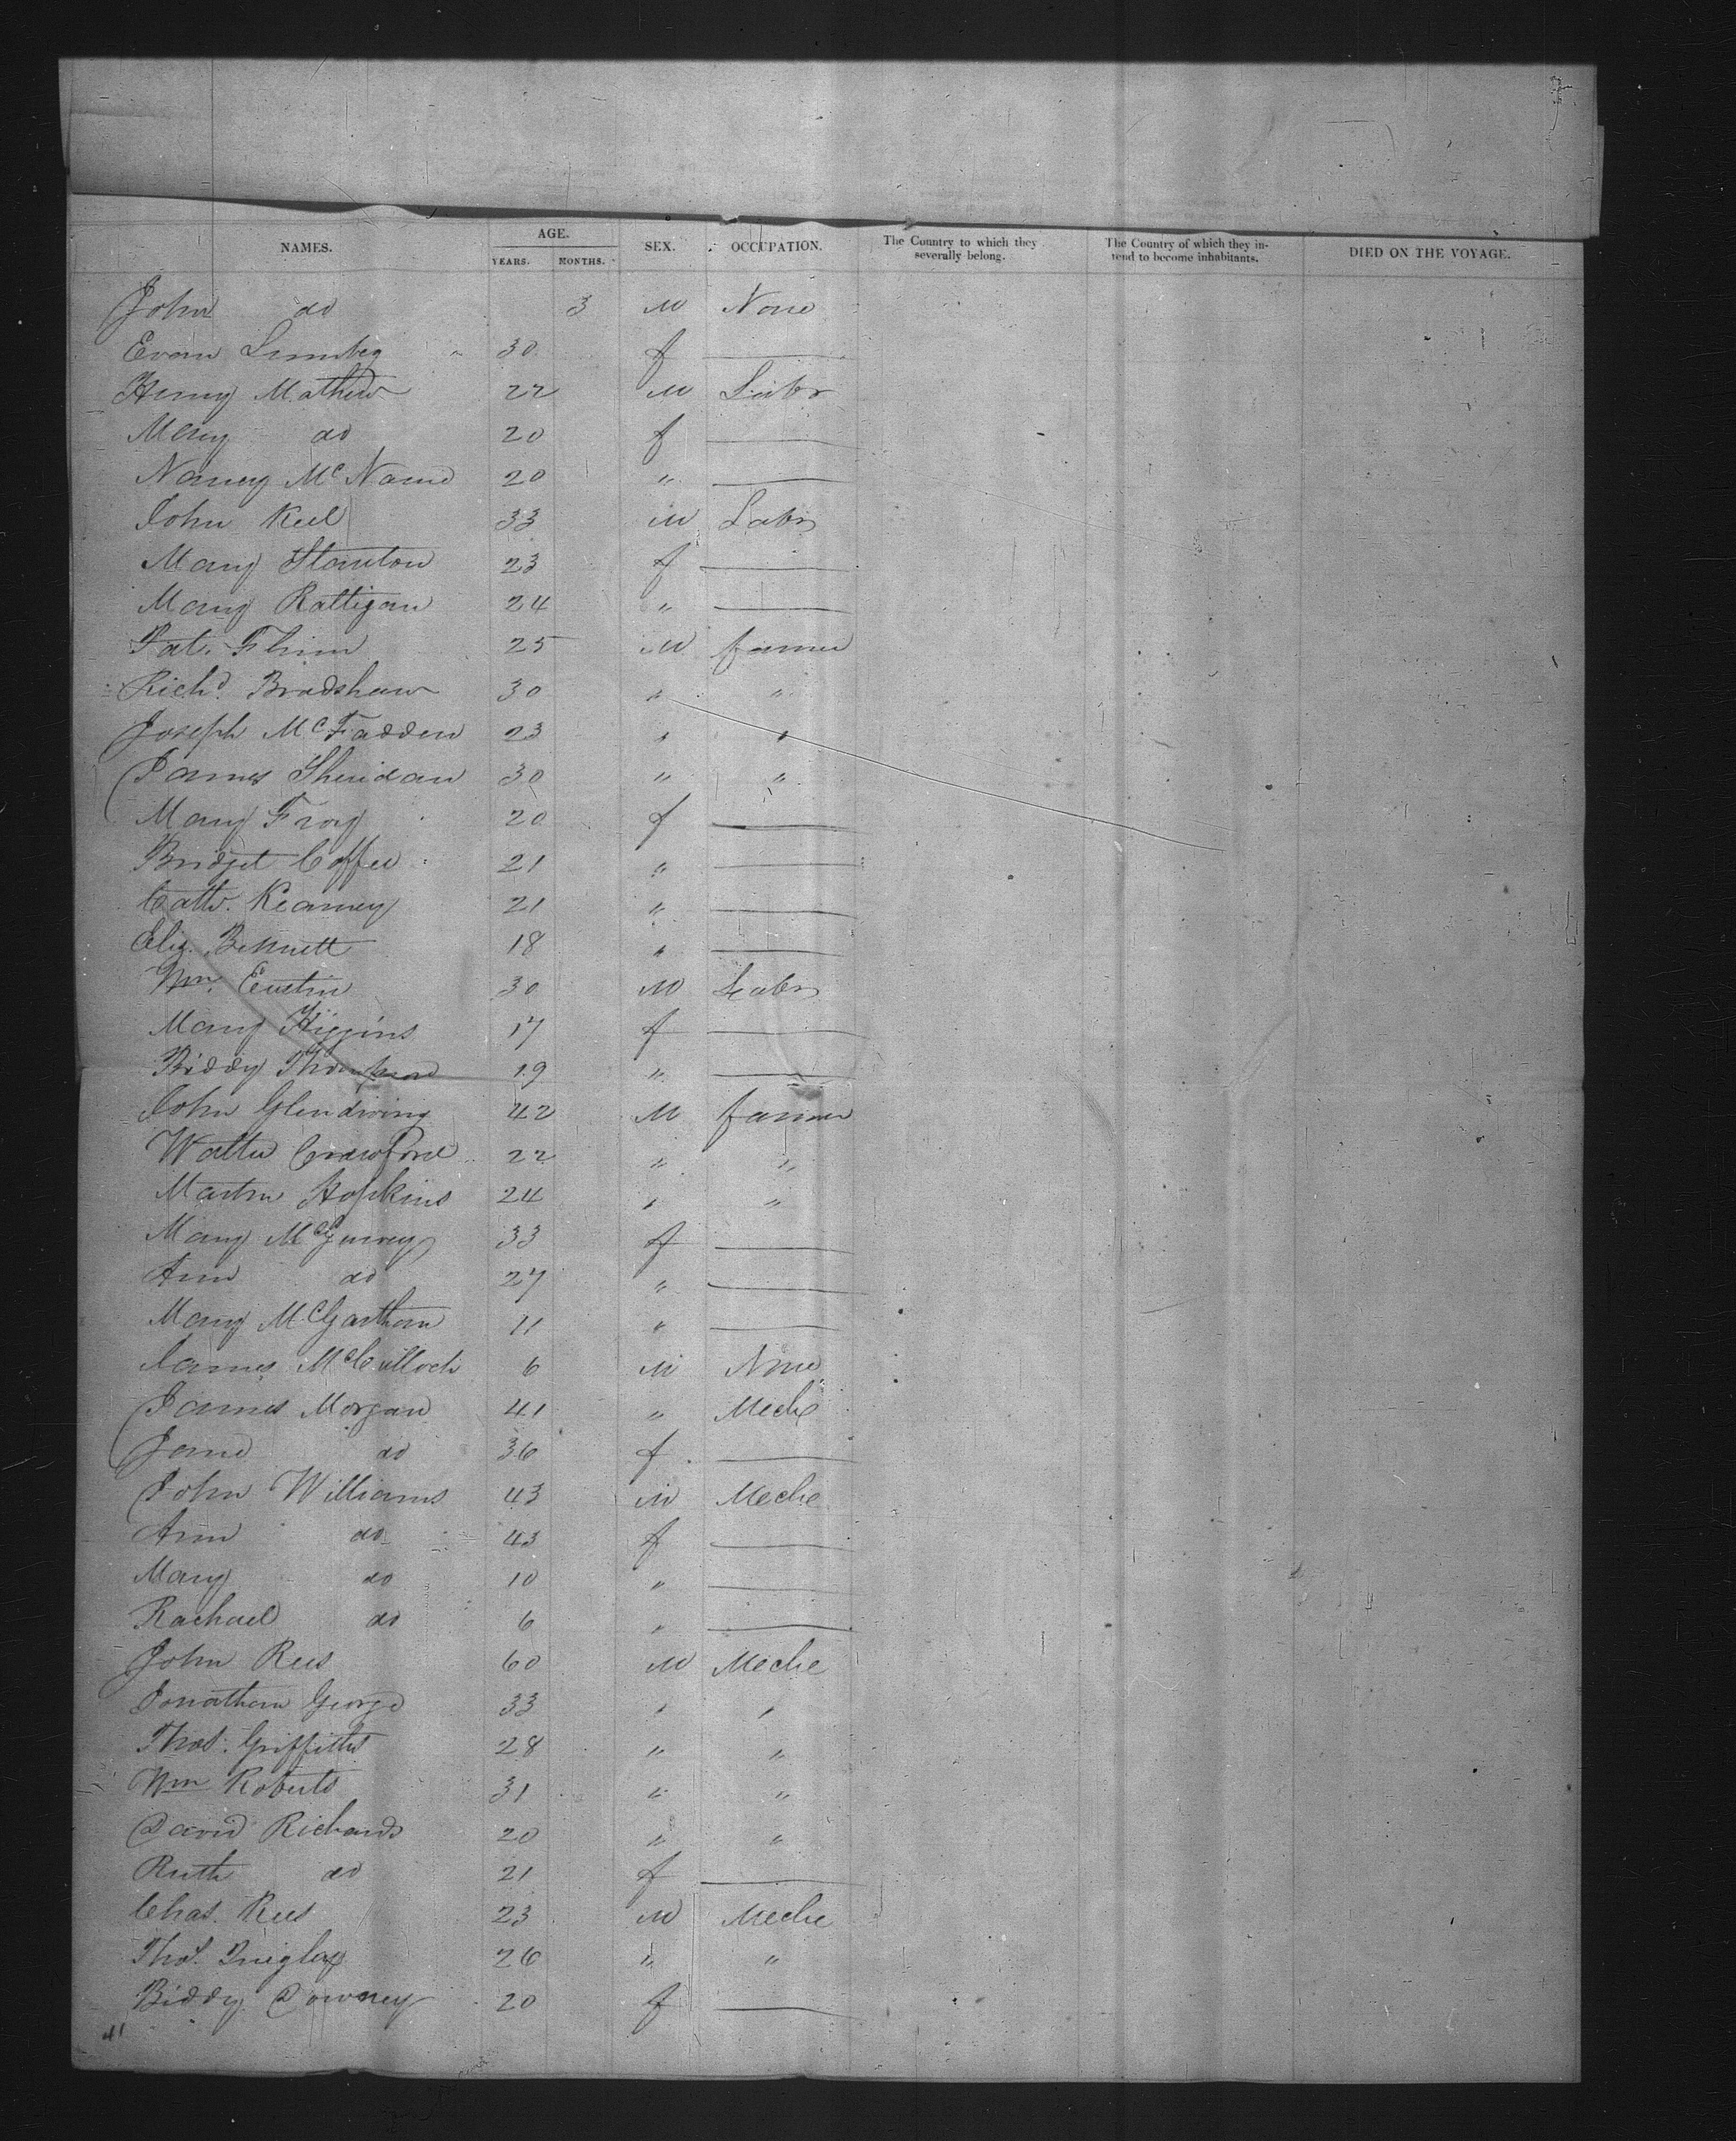 NAMES. AGE. YEARS. MONTHS. SEX. OCCUPATION. The Country to which they severally belong. The Country of which they intend to become inhabitants. DIED ON THE VOYAGE.
John do 3 M None
Evan 30 f
Henry Mathew 22 M Labr
Mary do 20 f
Nancy Mc Name 20 "
John Keel 33 M Labr
Mary Stanton 23 f
Mary Rattigan 24 "
Pat. Flinn 25 M farmer
Richd. Bradshaw 30 " "
Joseph McFadden 23 " "
James Sheridan 30 " "
Mary 20 f
Bridget Coffee 21 "
Cathe. Kearney 21 "
Eliz. Bennett 18 "
Wm. 30 M Labr
Mary Higgins 17 f
Biddy Thompson 19 "
John Glendining 42 M farmer
Walter Crawford 22 " "
Martin Hopkins 24 " "
Mary 33 f
Ann do 27 "
Mary 11 "
James McCulloch 6 M None
James Morgan 41 " Meche
Jane do 36 f
John Williams 43 M Meche
Ann do 43 f
Mary do 10 "
Rachael do 6 "
John Rees 60 M Meche
Jonathan George 33 " "
Thos. Griffiths 28 " "
Wm Roberts 31 " "
David Richards 20 " "
Ruth do 21 f
Chas. Rees 23 M Meche
Thos. 26 " "
Biddy Downey 20 f
41